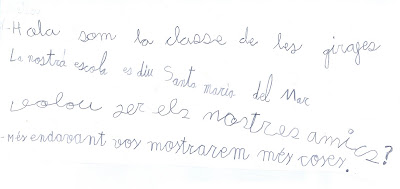 -Hola som la classe de les girafes
La nostra escola es diu Santa maria del Mar
voleu ser els nostres amics?
-més endavant vos mostrarem més coses.